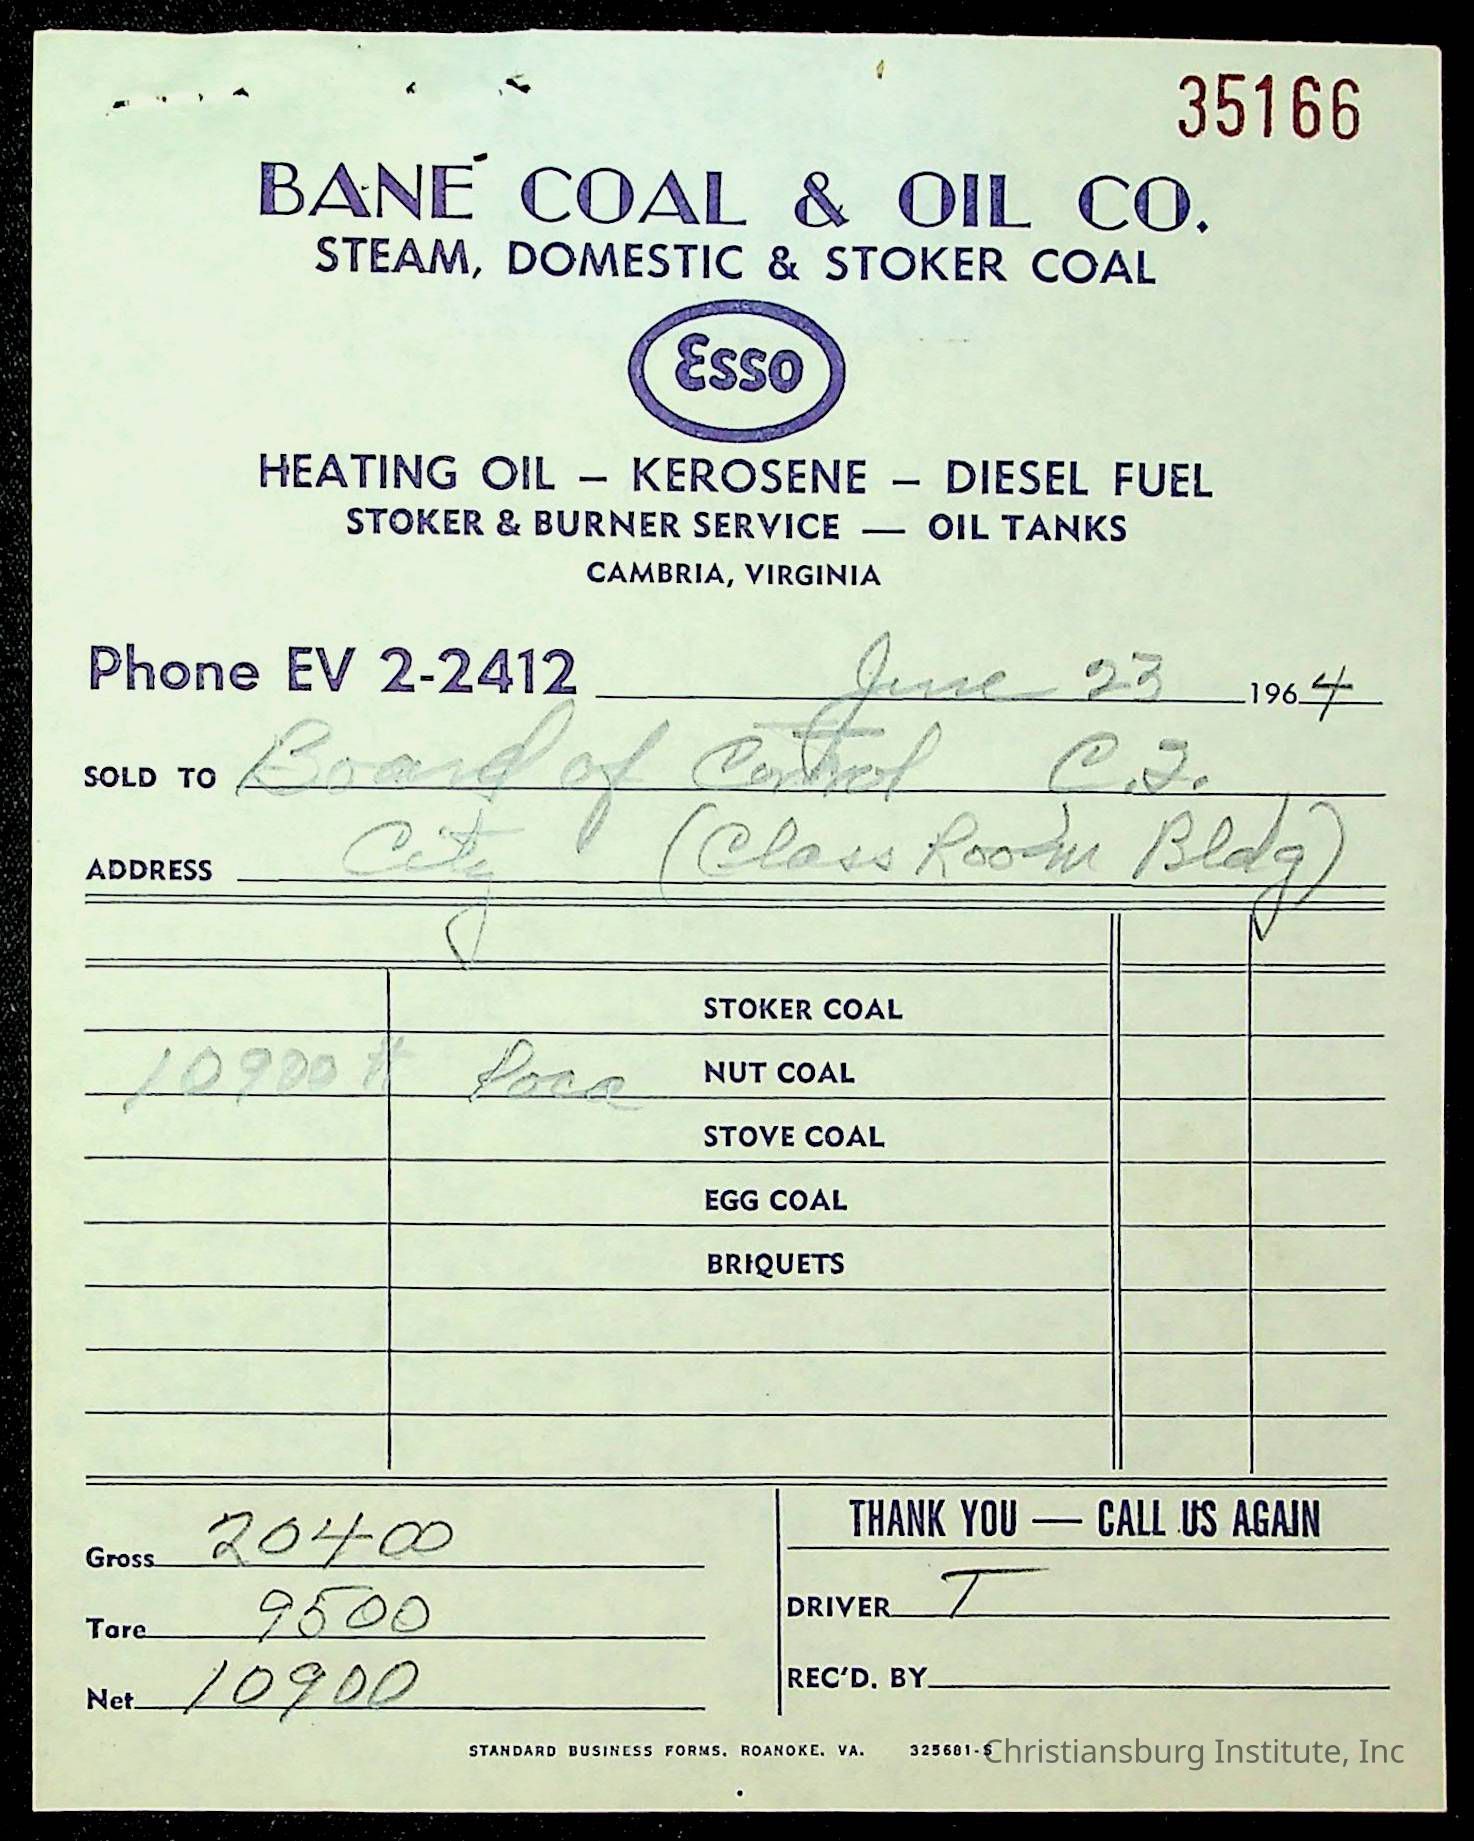 35166
BANE COAL & OIL CO.
STEAM, DOMESTIC & STOKER COAL
Esso
HEATING OIL – KEROSENE – DIESEL FUEL
STOKER & BURNER SERVICE — OIL TANKS
CAMBRIA, VIRGINIA
Phone EV 2-2412 June 23 1964
SOLD TO Board of Control C.I.
ADDRESS City (Class Room Bldg)
STOKER COAL
10900 # Poca NUT COAL
STOVE COAL
EGG COAL
BRIQUETS
Gross 20400
Tare 9500
Net 10900
THANK YOU — CALL US AGAIN
DRIVER T
REC'D. BY
STANDARD BUSINESS FORMS. ROANOKE. VA. 325681-S
Christiansburg Institute, Inc